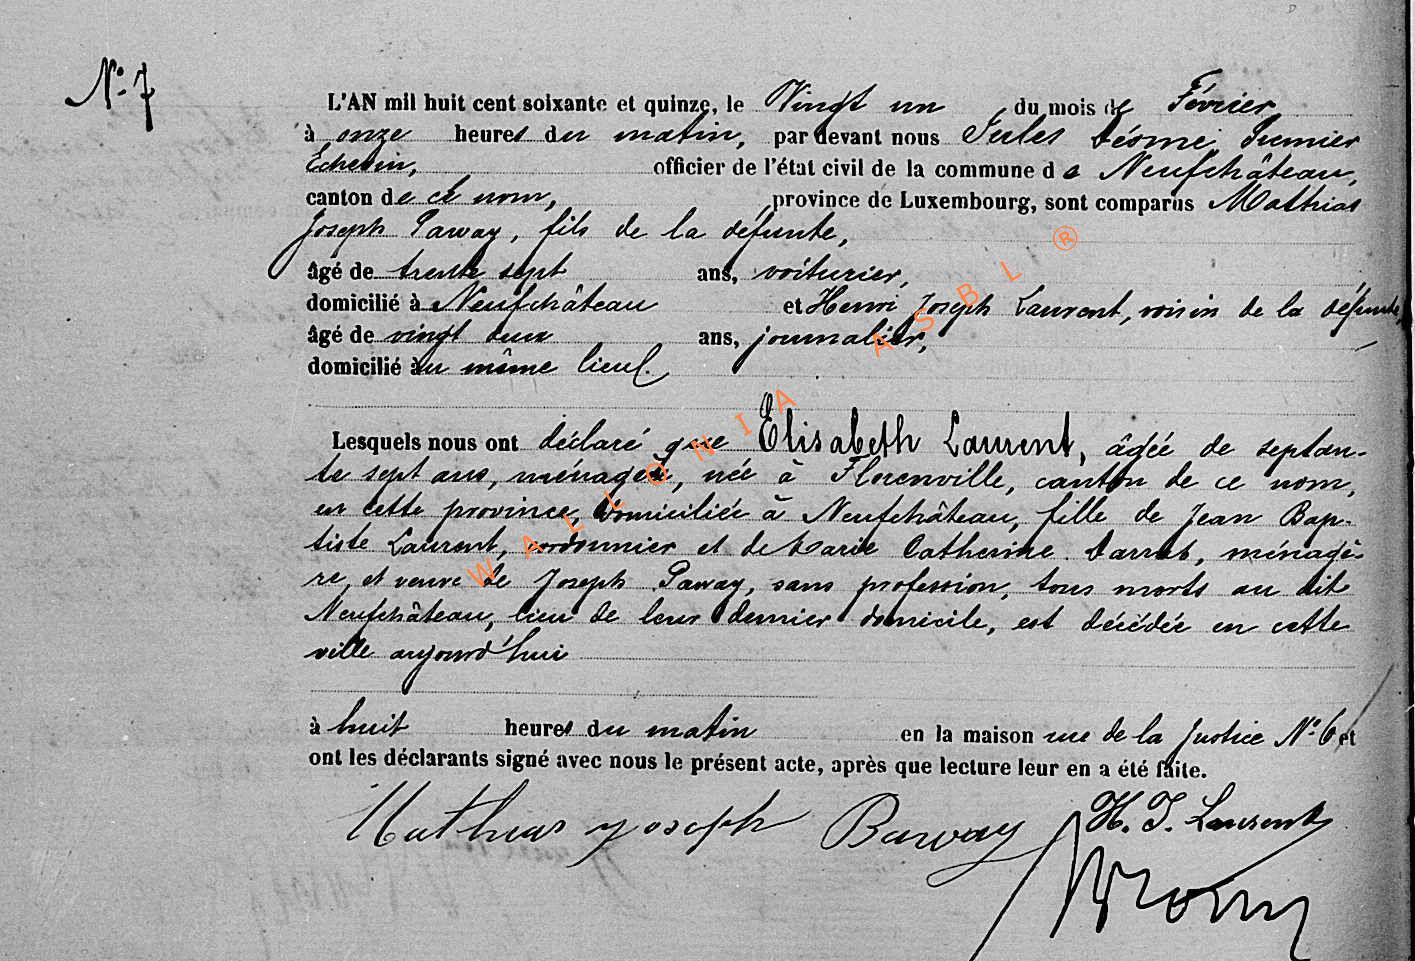 N° 7
L'AN mil huit cent soixante et quinze, le Vingt un du mois de Février
à onze heures du matin, par devant nous Jules Premier
Echevin, officier de l'état civil de la commune de Neufchâteau,
canton de ce nom, province de Luxembourg, sont comparus Mathias
Joseph Paway, fils de la défunte,
âgé de trente sept ans, voiturier,
domicilié à Neufchâteau et Henri Joseph Laurent, voisin de la défunte,
âgé de vingt deux ans, journalier,
domicilié au même lieu.
Lesquels nous ont déclaré que Elisabeth Laurent, âgée de septan-
te sept ans, ménagère, née à Florenville, canton de ce nom,
en cette province, domiciliée à Neufchâteau, fille de Jean Bap-
tiste Laurent, cordonnier et de Marie Catherine ménagè-
re, et veuve de Joseph Paway, sans profession, tous morts au dit
Neufchâteau, lieu de leur dernier domicile, est décédée en cette
ville aujourd'hui
à huit heures du matin en la maison rue de la Justice N° 6, et
ont les déclarants signé avec nous le présent acte, après que lecture leur en a été faite.
Mathias Joseph Paway H. J. Laurent
WALLONIA ASBL ®